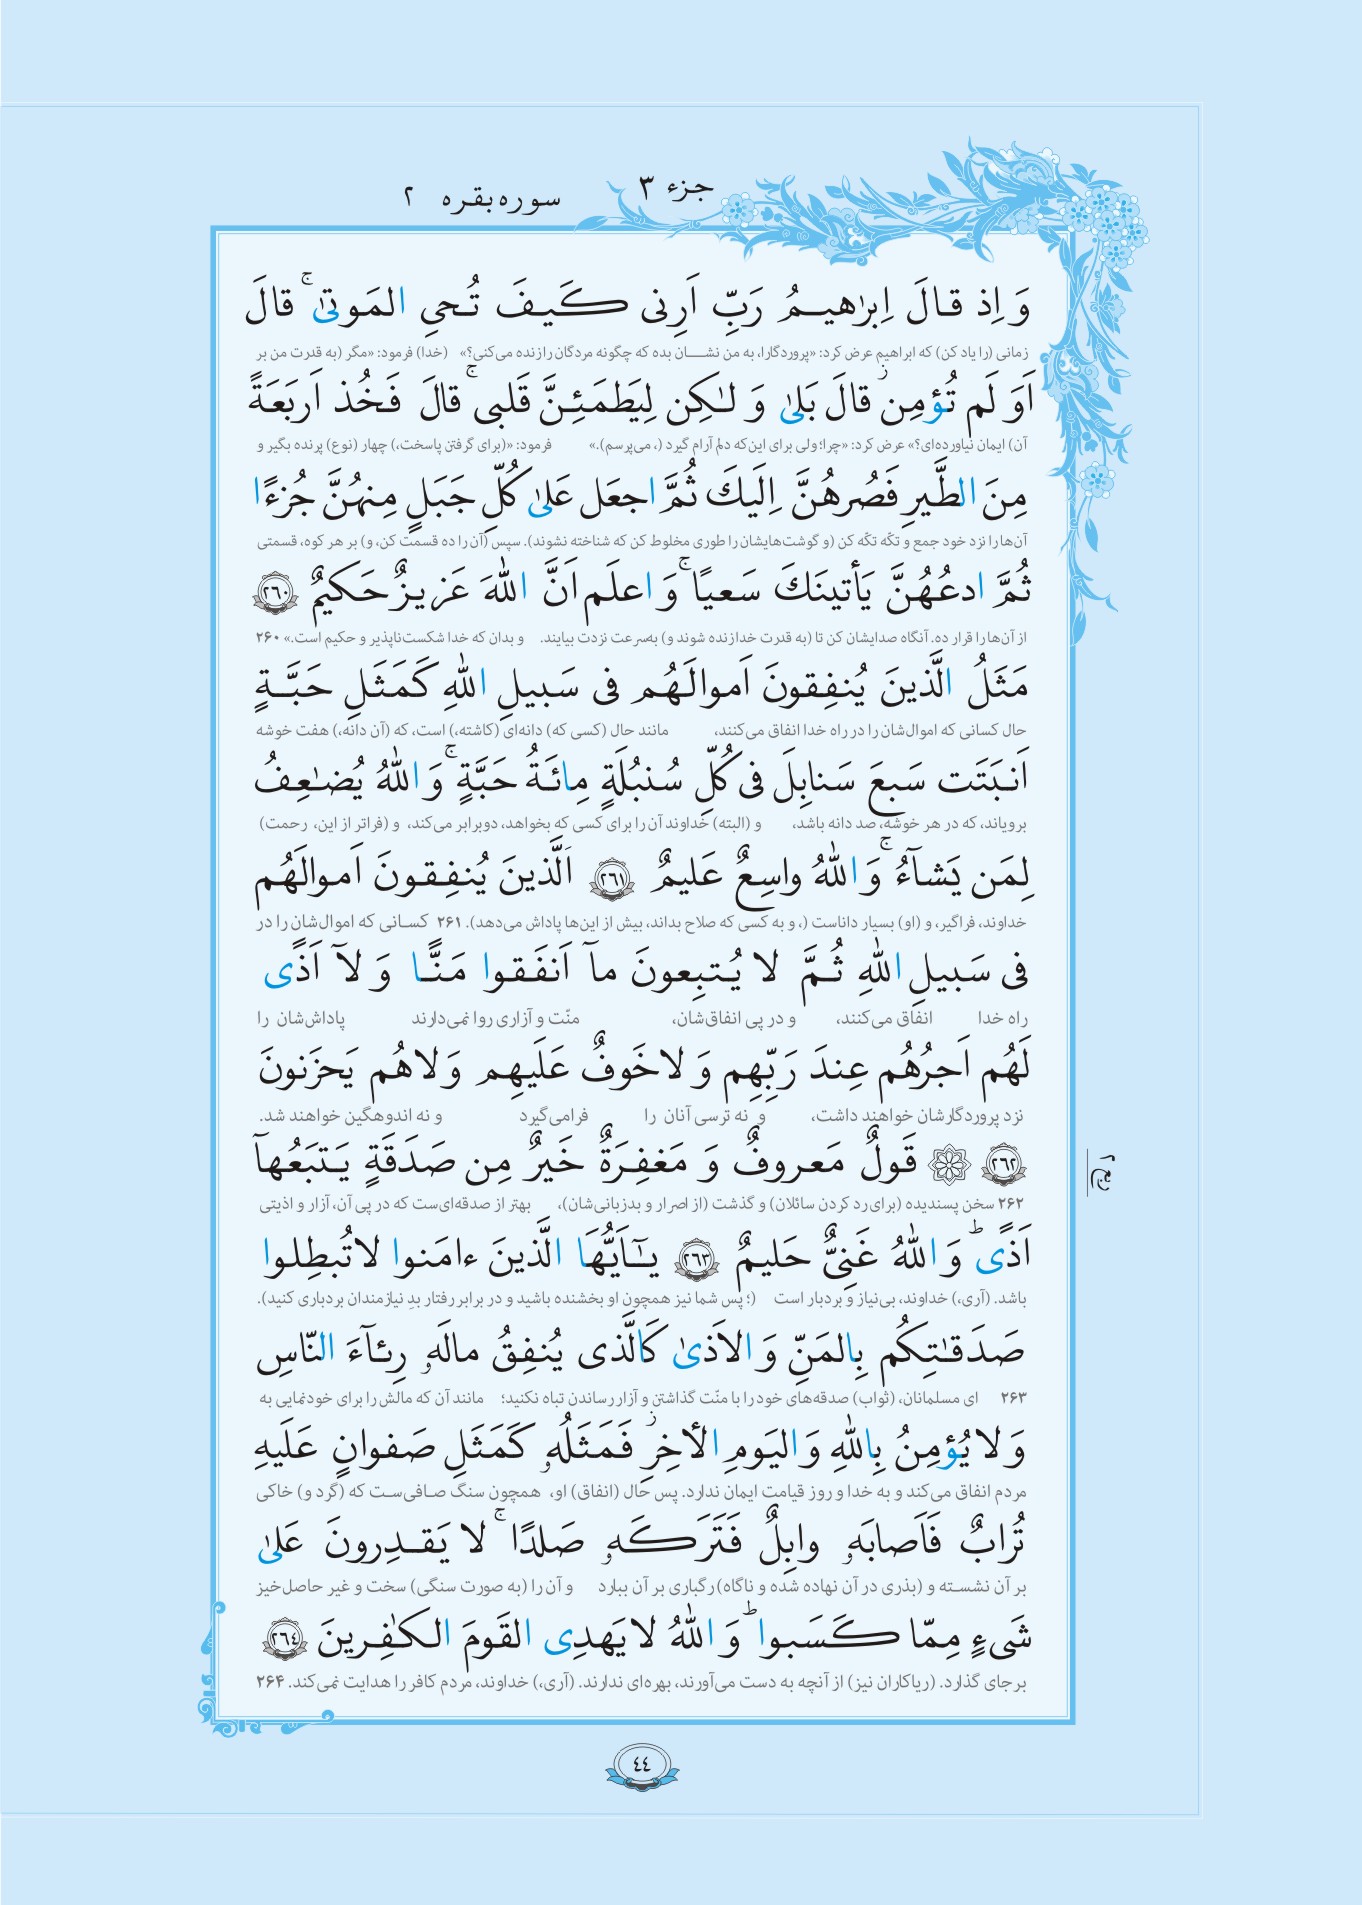 جزء ۳
سوره بقره ۲
وَ اِذ قالَ اِبرٰهیمُ رَبِّ اَرِنی کَیفَ تُحیِ المَوتیٰ ۚ قالَ
زمانی (را یاد کن) که ابراهیم عرض کرد: «پروردگارا، به من نشان بده که چگونه مردگان را زنده می‌کنی؟» (خدا) فرمود: «مگر (به قدرت من بر
اَوَ لَم تُؤمِن ۖ قالَ بَلیٰ وَ لٰکِن لِیَطمَئِنَّ قَلبی ۚ قالَ فَخُذ اَربَعَةً
آن) ایمان نیاورده‌ای؟» عرض کرد: «چرا؛ ولی برای این‌که دلم آرام گیرد (، می‌پرسم).» فرمود: «(برای گرفتن پاسخت،) چهار (نوع) پرنده بگیر و
مِنَ الطَّیرِ فَصُرهُنَّ اِلَیكَ ثُمَّ اجعَل عَلیٰ کُلِّ جَبَلٍ مِنهُنَّ جُزءًا
آن‌ها را نزد خود جمع و تکّه تکّه کن (و گوشت‌هایشان را طوری مخلوط کن که شناخته نشوند). سپس (آن را ده قسمت کن، و) بر هر کوه، قسمتی
ثُمَّ ادعُهُنَّ یَأتینَكَ سَعیًا ۚ وَ اعلَم اَنَّ اللّٰهَ عَزیزٌ حَکیمٌ ﴿٢٦٠﴾
از آن‌ها را قرار ده. آنگاه صدایشان کن تا (به قدرت خدا زنده شوند و) به‌سرعت نزدت بیایند. و بدان که خدا شکست‌ناپذیر و حکیم است.» ۲۶۰
مَثَلُ الَّذینَ یُنفِقونَ اَموالَهُم فی سَبیلِ اللّٰهِ کَمَثَلِ حَبَّةٍ
حال کسانی که اموال‌شان را در راه خدا انفاق می‌کنند، مانند حال (کسی که) دانه‌ای (کاشته،) است، که (آن دانه،) هفت خوشه
اَنبَتَت سَبعَ سَنابِلَ فی کُلِّ سُنبُلَةٍ مِائَةُ حَبَّةٍ ۚ وَ اللّٰهُ یُضٰعِفُ
برویاند، که در هر خوشه، صد دانه باشد، و (البته) خداوند آن را برای کسی که بخواهد، دوبرابر می‌کند، و (فراتر از این، رحمت)
لِمَن یَشآءُ ۚ وَ اللّٰهُ واسِعٌ عَلیمٌ ﴿٢٦١﴾ اَلَّذینَ یُنفِقونَ اَموالَهُم
خداوند، فراگیر، و (او) بسیار داناست (، و به کسی که صلاح بداند، بیش از این‌ها پاداش می‌دهد). ۲۶۱ کسانی که اموال‌شان را در
فی سَبیلِ اللّٰهِ ثُمَّ لا یُتبِعونَ مآ اَنفَقوا مَنًّا وَ لآ اَذًی
راه خدا انفاق می‌کنند، و در پی انفاق‌شان، منّت و آزاری روا نمی‌دارند پاداش‌شان را
لَهُم اَجرُهُم عِندَ رَبِّهِم وَ لا خَوفٌ عَلَیهِم وَ لا هُم یَحزَنونَ
نزد پروردگارشان خواهند داشت، و نه ترسی آنان را فرامی‌گیرد و نه اندوهگین خواهند شد.
﴿٢٦٢﴾ ۞ قَولٌ مَعروفٌ وَ مَغفِرَةٌ خَیرٌ مِن صَدَقَةٍ یَتبَعُهآ
۲۶۲ سخن پسندیده (برای رد کردن سائلان) و گذشت (از اصرار و بدزبانی‌شان)، بهتر از صدقه‌ای‌ست که در پی آن، آزار و اذیتی
اَذًی ؕ وَ اللّٰهُ غَنِیٌّ حَلیمٌ ﴿٢٦٣﴾ یٰٓاَیُّهَا الَّذینَ ءامَنوا لا تُبطِلوا
باشد. (آری،) خداوند، بی‌نیاز و بردبار است (؛ پس شما نیز همچون او بخشنده باشید و در برابر رفتار بدِ نیازمندان بردباری کنید).
صَدَقٰتِکُم بِالمَنِّ وَ الاَذیٰ کَالَّذی یُنفِقُ مالَهٗ رِئآءَ النّاسِ
۲۶۳ ای مسلمانان، (ثواب) صدقه‌های خود را با منّت گذاشتن و آزار رساندن تباه نکنید؛ مانند آن که مالش را برای خودنمایی به
وَ لا یُؤمِنُ بِاللّٰهِ وَ الیَومِ الاخِرِ ۖ فَمَثَلُهٗ کَمَثَلِ صَفوانٍ عَلَیهِ
مردم انفاق می‌کند و به خدا و روز قیامت ایمان ندارد. پس حال (انفاق) او، همچون سنگ صافی‌ست که (گرد و) خاکی
تُرابٌ فَاَصابَهٗ وابِلٌ فَتَرَکَهٗ صَلدًا ۚ لا یَقدِرونَ عَلیٰ
بر آن نشسته و (بذری در آن نهاده شده و ناگاه) رگباری بر آن ببارد و آن را (به صورت سنگی) سخت و غیر حاصل‌خیز
شَیءٍ مِمّا کَسَبوا ؕ وَ اللّٰهُ لا یَهدِی القَومَ الکٰفِرینَ ﴿٢٦٤﴾
برجای گذارد. (ریاکاران نیز) از آنچه به دست می‌آورند، بهره‌ای ندارند. (آری،) خداوند، مردم کافر را هدایت نمی‌کند. ۲۶۴
٤٤